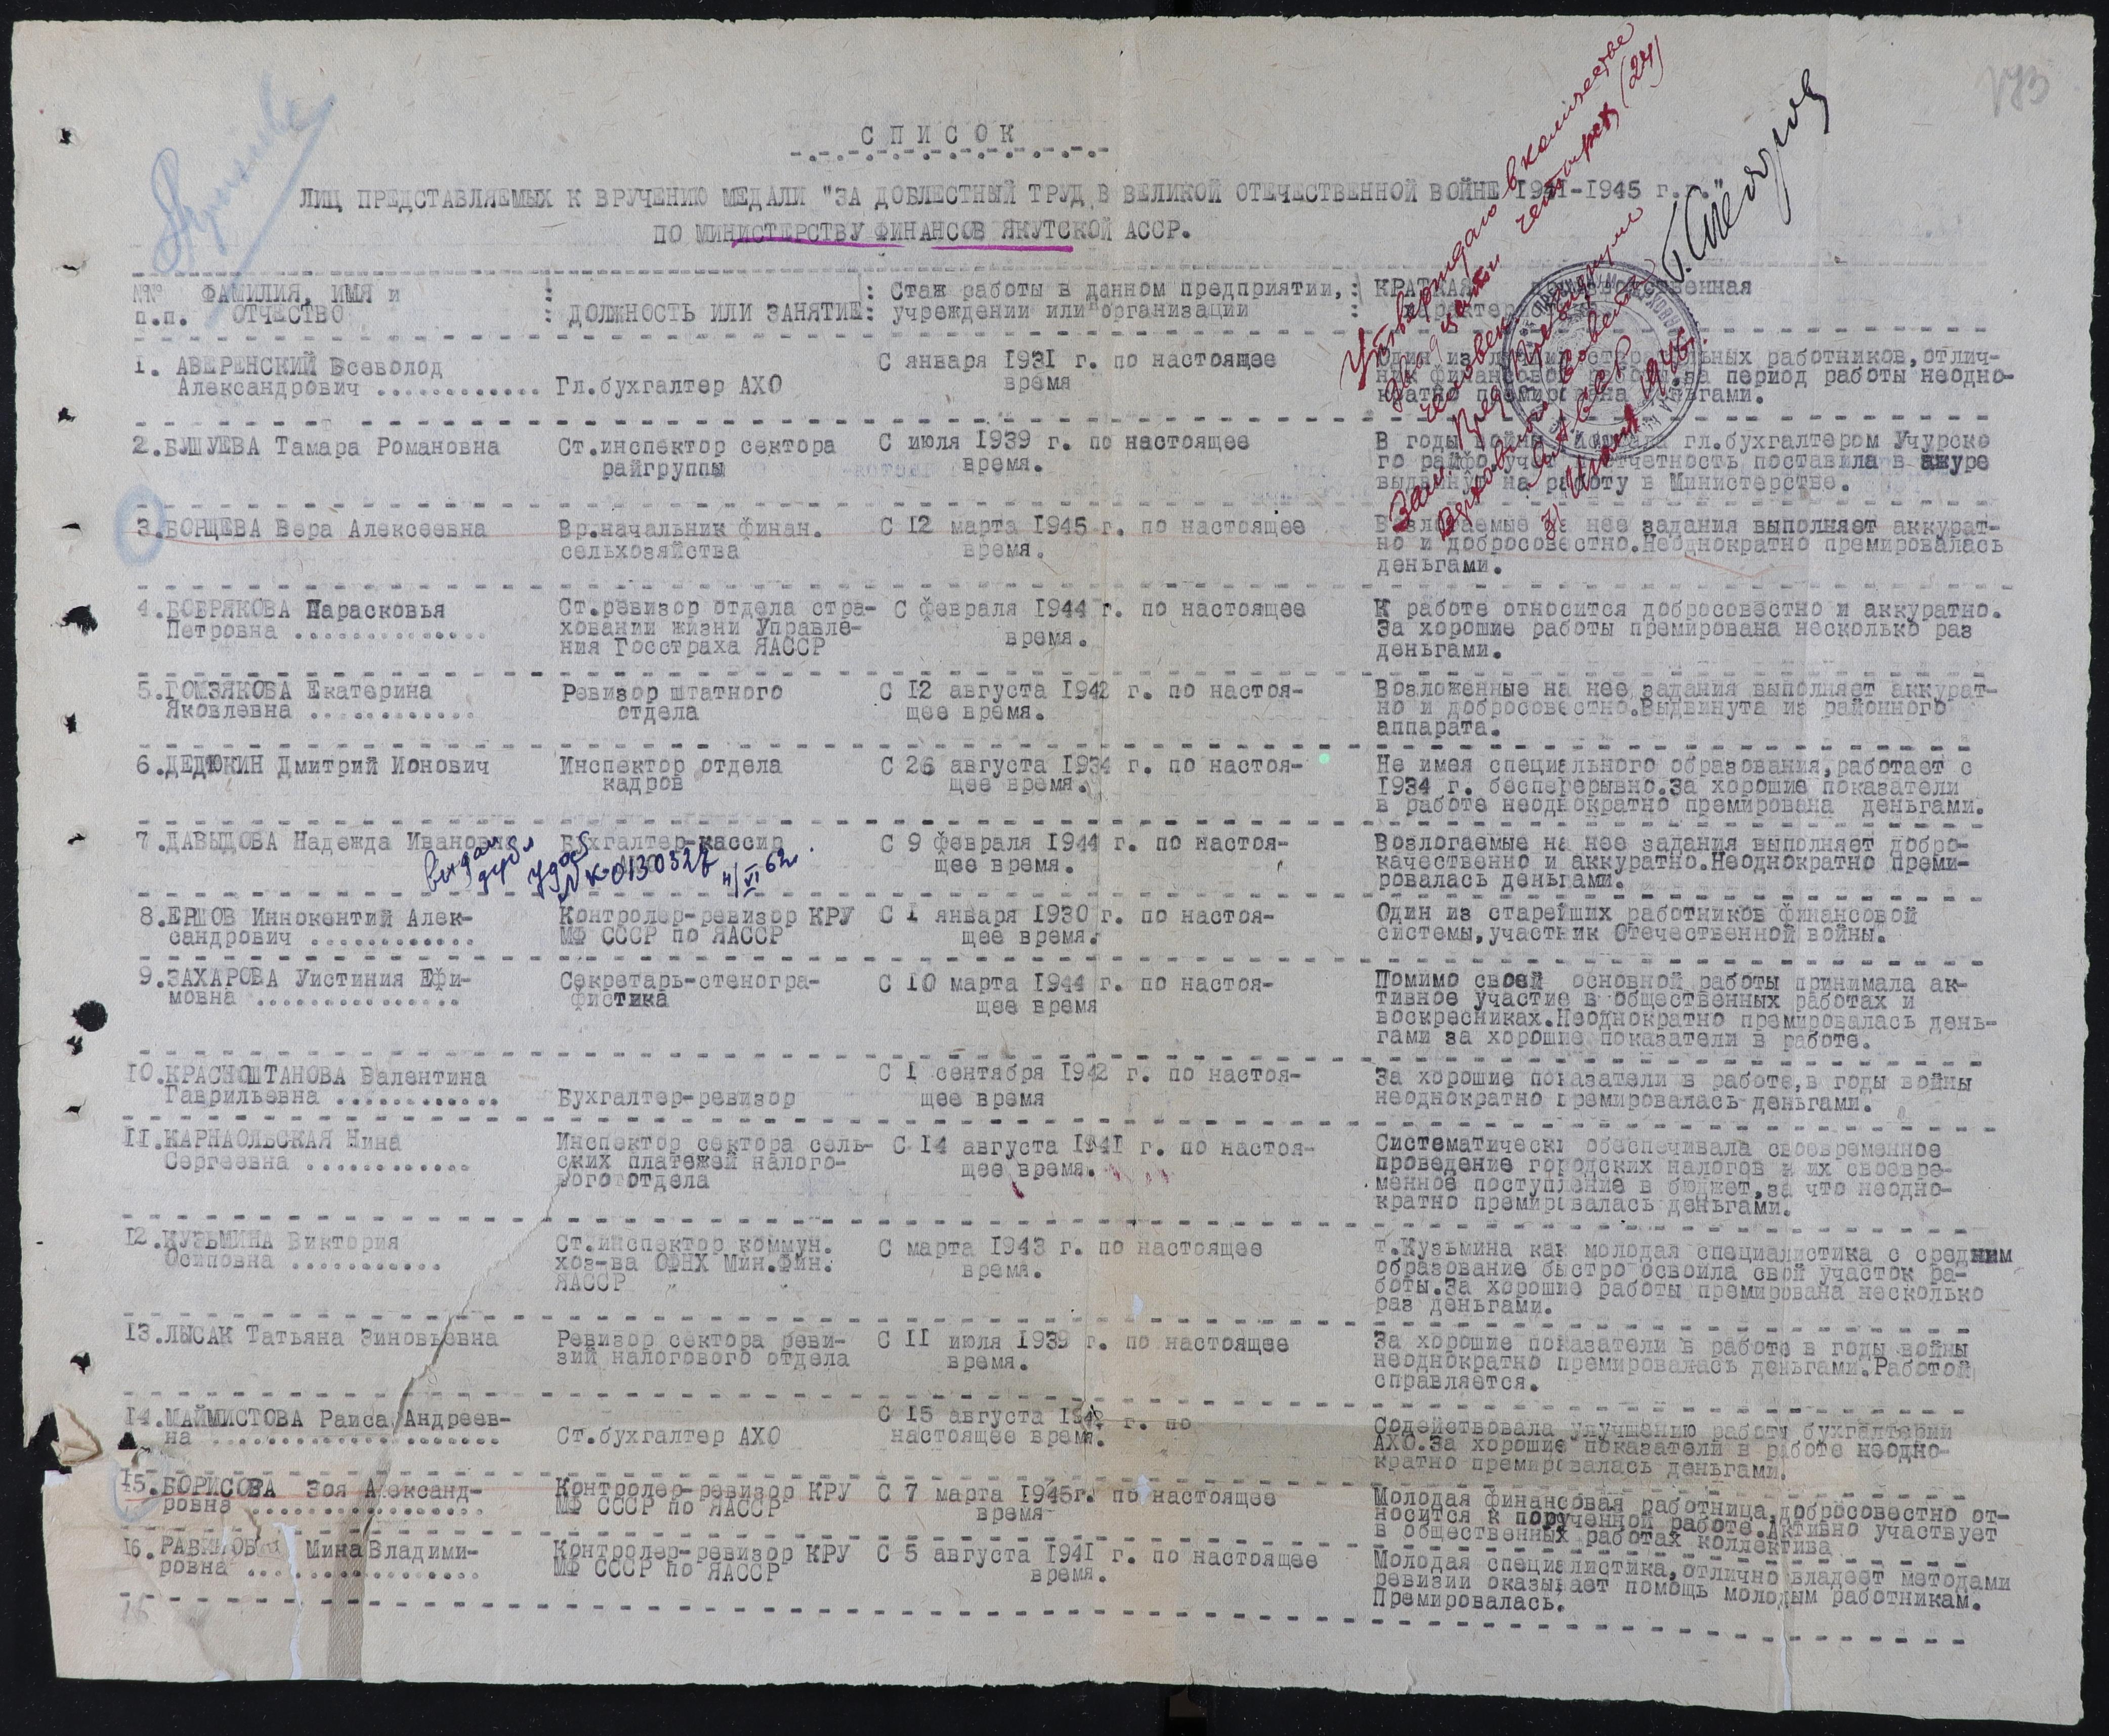 173
СПИСОК
ЛИЦ ПРЕДСТАВЛЯЕМЫХ К ВРУЧЕНИЮ МЕДАЛИ "ЗА ДОБЛЕСТНЫЙ ТРУД В ВЕЛИКОЙ ОТЕЧЕСТВЕННОЙ ВОЙНЕ 1941-1945 г.г."
ПО МИНИСТЕРСТВУ ФИНАНСОВ ЯКУТСКОЙ АССР.
Утверждаю в количестве
двадцати четырех (24)
человек
Зам. Пред. Президиума
Верховного Совета
ЯАССР
1946
№№ ФАМИЛИЯ, ИМЯ и : ДОЛЖНОСТЬ ИЛИ ЗАНЯТИЕ : Стаж работы в данном предприятии, : КРАТКАЯ
п.п. ОТЧЕСТВО учреждении или организации
1. АВЕРЕНСКИЙ Всеволод С января 1931 г. по настоящее Один из работников, отлич-
Александрович ............ Гл.бухгалтер АХО время ник финансовой за период работы неодно-
кратно премирована деньгами.
2. БУШУЕВА Тамара Романовна Ст.инспектор сектора С июля 1939 г. по настоящее В годы войны гл.бухгалтером Учурско
райгруппы время. го райфо, отчетность поставила в ажуре
выдвинут на работу в Министерстве.
3. БОРЩЕВА Вера Алексеевна Вр.начальник финан. С 12 марта 1945 г. по настоящее Возлогаемые на нее задания выполняет аккурат-
сельхозяйства время. но и добросовестно.Неоднократно премировалась
деньгами.
4. БОБРЯКОВА Парасковья Ст.ревизор отдела стра- С февраля 1944 г. по настоящее К работе относится добросовестно и аккуратно.
Петровна .............. ховании жизни Управле- время. За хорошие работы премирована несколько раз
ния Госстраха ЯАССР деньгами.
5. ГОМЗЯКОВА Екатерина Ревизор штатного С 12 августа 1942 г. по настоя- Возложенные на нее задания выполняет аккурат-
Яковлевна ............ отдела щее время. но и добросовестно.Выдвинута из районного
аппарата.
6. ДЕДЮКИН Дмитрий Ионович Инспектор отдела С 26 августа 1934 г. по настоя- Не имея специального образования,работает с
кадров щее время. 1934 г. бесперерывно.За хорошие показатели
в работе неоднократно премирована деньгами.
7. ДАВЫДОВА Надежда Ивановна Бухгалтер-кассир С 9 февраля 1944 г. по настоя- Возлогаемые на нее задания выполняет добро-
щее время. качественно и аккуратно.Неоднократно преми-
ровалась деньгами.
выдан
дубл удос
№ К-0130327 4/VI 62г.
8. ЕРШОВ Иннокентий Алек- Контролер-ревизор КРУ С 1 января 1930 г. по настоя- Один из старейших работников финансовой
сандрович ............ МФ СССР по ЯАССР щее время. системы,участник Отечественной войны.
9. ЗАХАРОВА Уистиния Ефи- Секретарь-стеногра- С 10 марта 1944 г. по настоя- Помимо своей основной работы принимала ак-
мовна ............... фистика щее время тивное участие в общественных работах и
воскресниках.Неоднократно премировалась день-
гами за хорошие показатели в работе.
10. КРАСНОШТАНОВА Валентина С 1 сентября 1942 г. по настоя- За хорошие показатели в работе,в годы войны
Гаврильевна ............ Бухгалтер-ревизор щее время неоднократно премировалась деньгами.
11. КАРНАОЛЬСКАЯ Нина Инспектор сектора сель- С 14 августа 1941 г. по настоя- Систематически обеспечивала своевременное
Сергеевна ............ ских платежей налого- щее время. проведение городских налогов и их своевре-
вого отдела менное поступление в бюджет,за что неодно-
кратно премировалась деньгами.
12. КУЗЬМИНА Виктория Ст.инспектор коммун. С марта 1943 г. по настоящее т.Кузьмина как молодая специалистика с средним
Осиповна ........... хоз-ва ОФНХ Мин.Фин. время. образование быстро освоила свой участок ра-
ЯАССР боты.За хорошие работы премирована несколько
раз деньгами.
13. ЛЫСАК Татьяна Зиновьевна Ревизор сектора реви- С 11 июля 1939 г. по настоящее За хорошие показатели в работе в годы войны
зий налогового отдела время. неоднократно премировалась деньгами.Работой
справляется.
14. МАЙМИСТОВА Раиса Андреев- С 15 августа 1942 г. по Содействовала улучшению работы бухгалтерии
на ................... Ст.бухгалтер АХО настоящее время. АХО.За хорошие показатели в работе неодно-
кратно премировалась деньгами.
15. БОРИСОВА Зоя Александ- Контролер-ревизор КРУ С 7 марта 1945г. по настоящее Молодая финансовая работница,добросовестно от-
ровна ................. МФ СССР по ЯАССР время носится к порученной работе.Активно участвует
в общественных работах коллектива
16. Мина Владими- Контролер-ревизор КРУ С 5 августа 1941 г. по настоящее Молодая специалистика,отлично владеет методами
ровна ................ МФ СССР по ЯАССР время. ревизии оказывает помощь молодым работникам.
Премировалась.
16